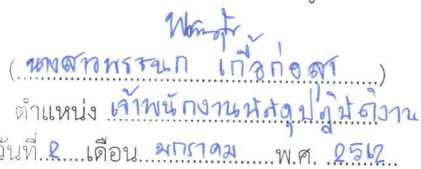 (นางสาวพรชนก เกื้อก่อสุา)
ตำแหน่ง เจ้าพนักงานพัสดุปฏิบัติงาน
วันที่ ๒ เดือน มกราคม พ.ศ. ๒๕๖๒